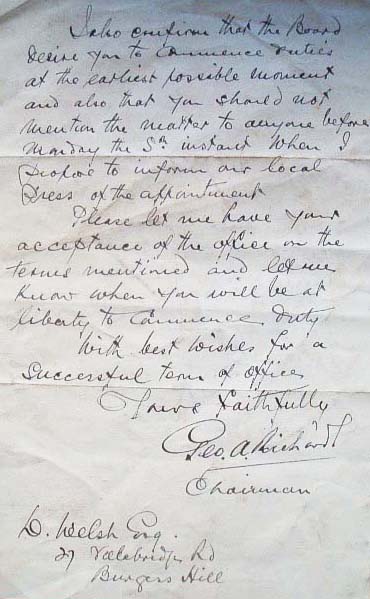 I also confirm that the Board
desire you to commence duties
at the earliest possible moment
and also that you should not
mention the matter to anyone before
Monday the 5th instant when I
propose to inform our local
Press of the appointment
Please let me have your
acceptance of the office on the
terms mentioned and let me
know when you will be at
liberty to commence duty
With best wishes for a
successful term of office
Yours faithfully
Geo. A. Richards
Chairman
D. Welsh Esq.
27 Valebridge Rd
Burgess Hill